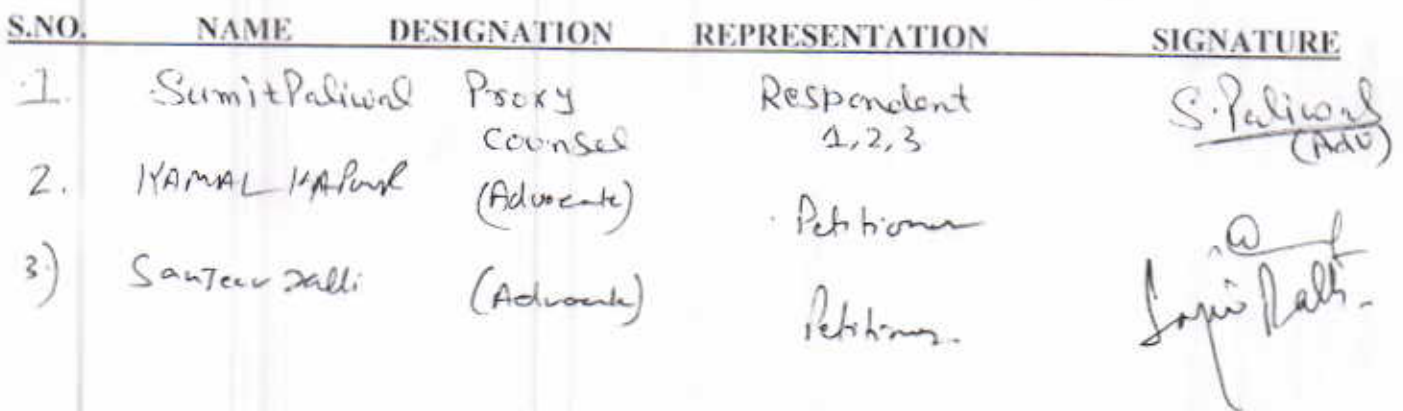 S.NO. NAME DESIGNATION REPRESENTATION SIGNATURE
1. Sumit Paliwal Proxy Respondent S. Paliwal
Counsel 1,2,3 (Adv)
2. KAMAL KAPUR (Advocate) Petitioner
3) Sanjeev Ralli (Advocate) Petitioner.